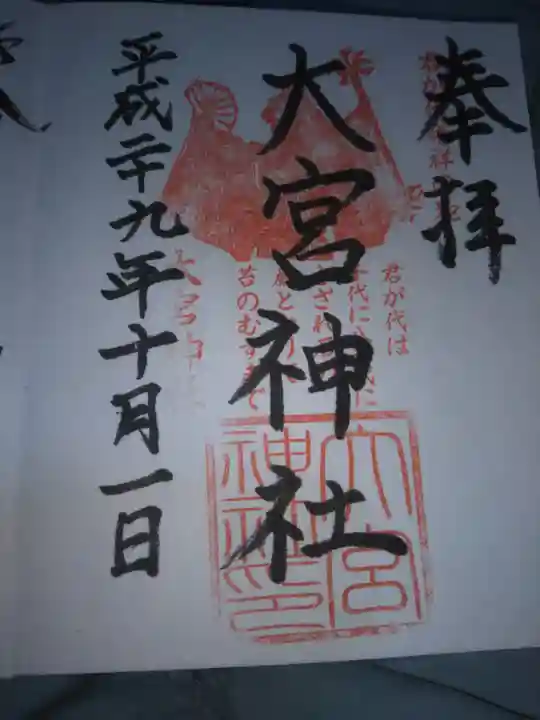 奉拝
君が代は
千代に八千代に
さざれ石の
巌となりて
苔のむすまで
大宮神社
大宮
神社印
平成二十九年十月一日